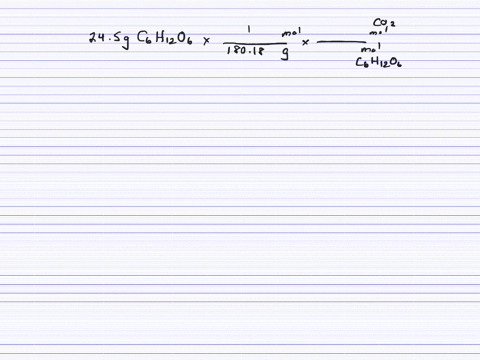 24.5g C6H12O6 × 1 mol / 180.18 g × mol CO2 / mol C6H12O6